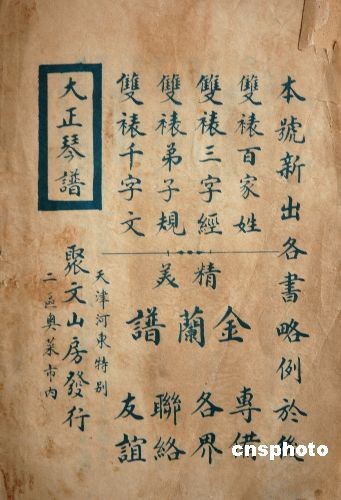 本號新出各書略例於後
雙裱百家姓
雙裱三字經
雙裱弟子規
雙裱千字文
精美
金蘭譜
專備
各界
聯絡
友誼
大正琴譜
天津河東特別
二區奧菜市内
聚文山房發行
cnsphoto